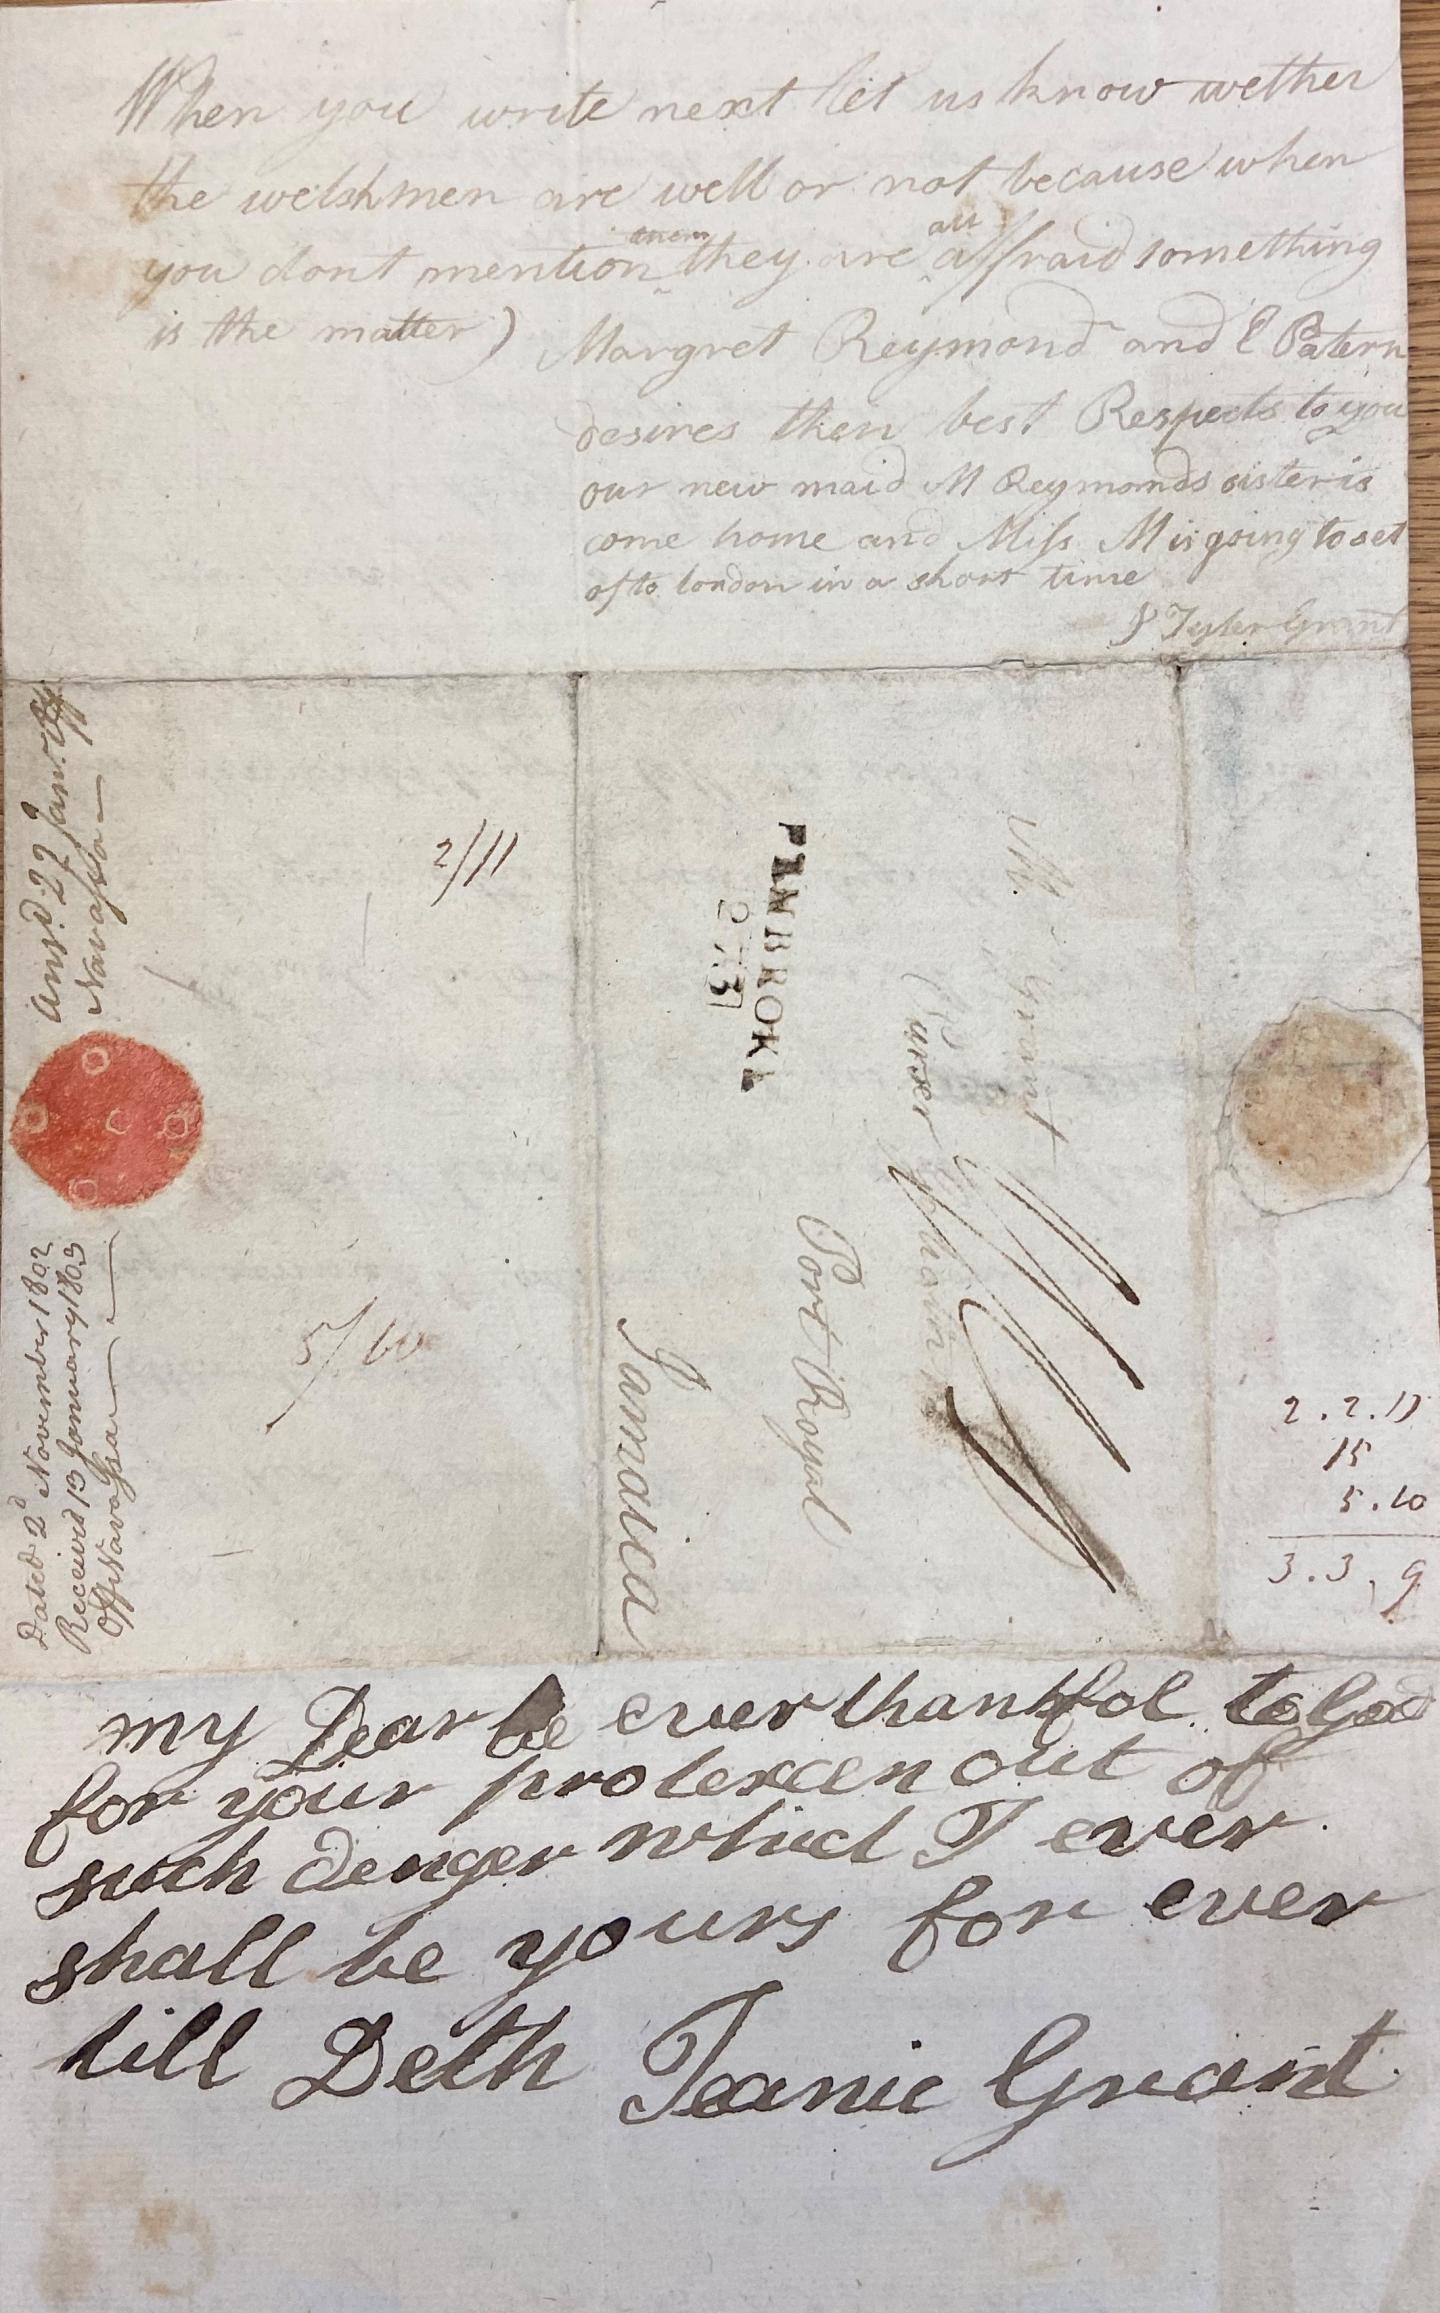 When you write next let us know wether
the welshmen are well or not because when
you dont mention them they are all affraid something
is the matter)
Margret Reymond and E Patern
desires then best Respects to you
our new maid M Reymonds sister is
come home and Miss M is going to set
of to london in a short time
Tyler Grant
Ansd. 27 Jany.
Navassa
2/11
PEMBROKE
273
Mr Grant
Purser
Port Royal
Jamaica
Dated 2d November 1802
Received 13 January 1803
Off Navassa
5/10
2.2.11
15
5.10
3.3.9
my Dear be ever thankfol to God
for your protexcen out of
such denger which I ever
shall be yours for ever
till Deth Jeanie Grant